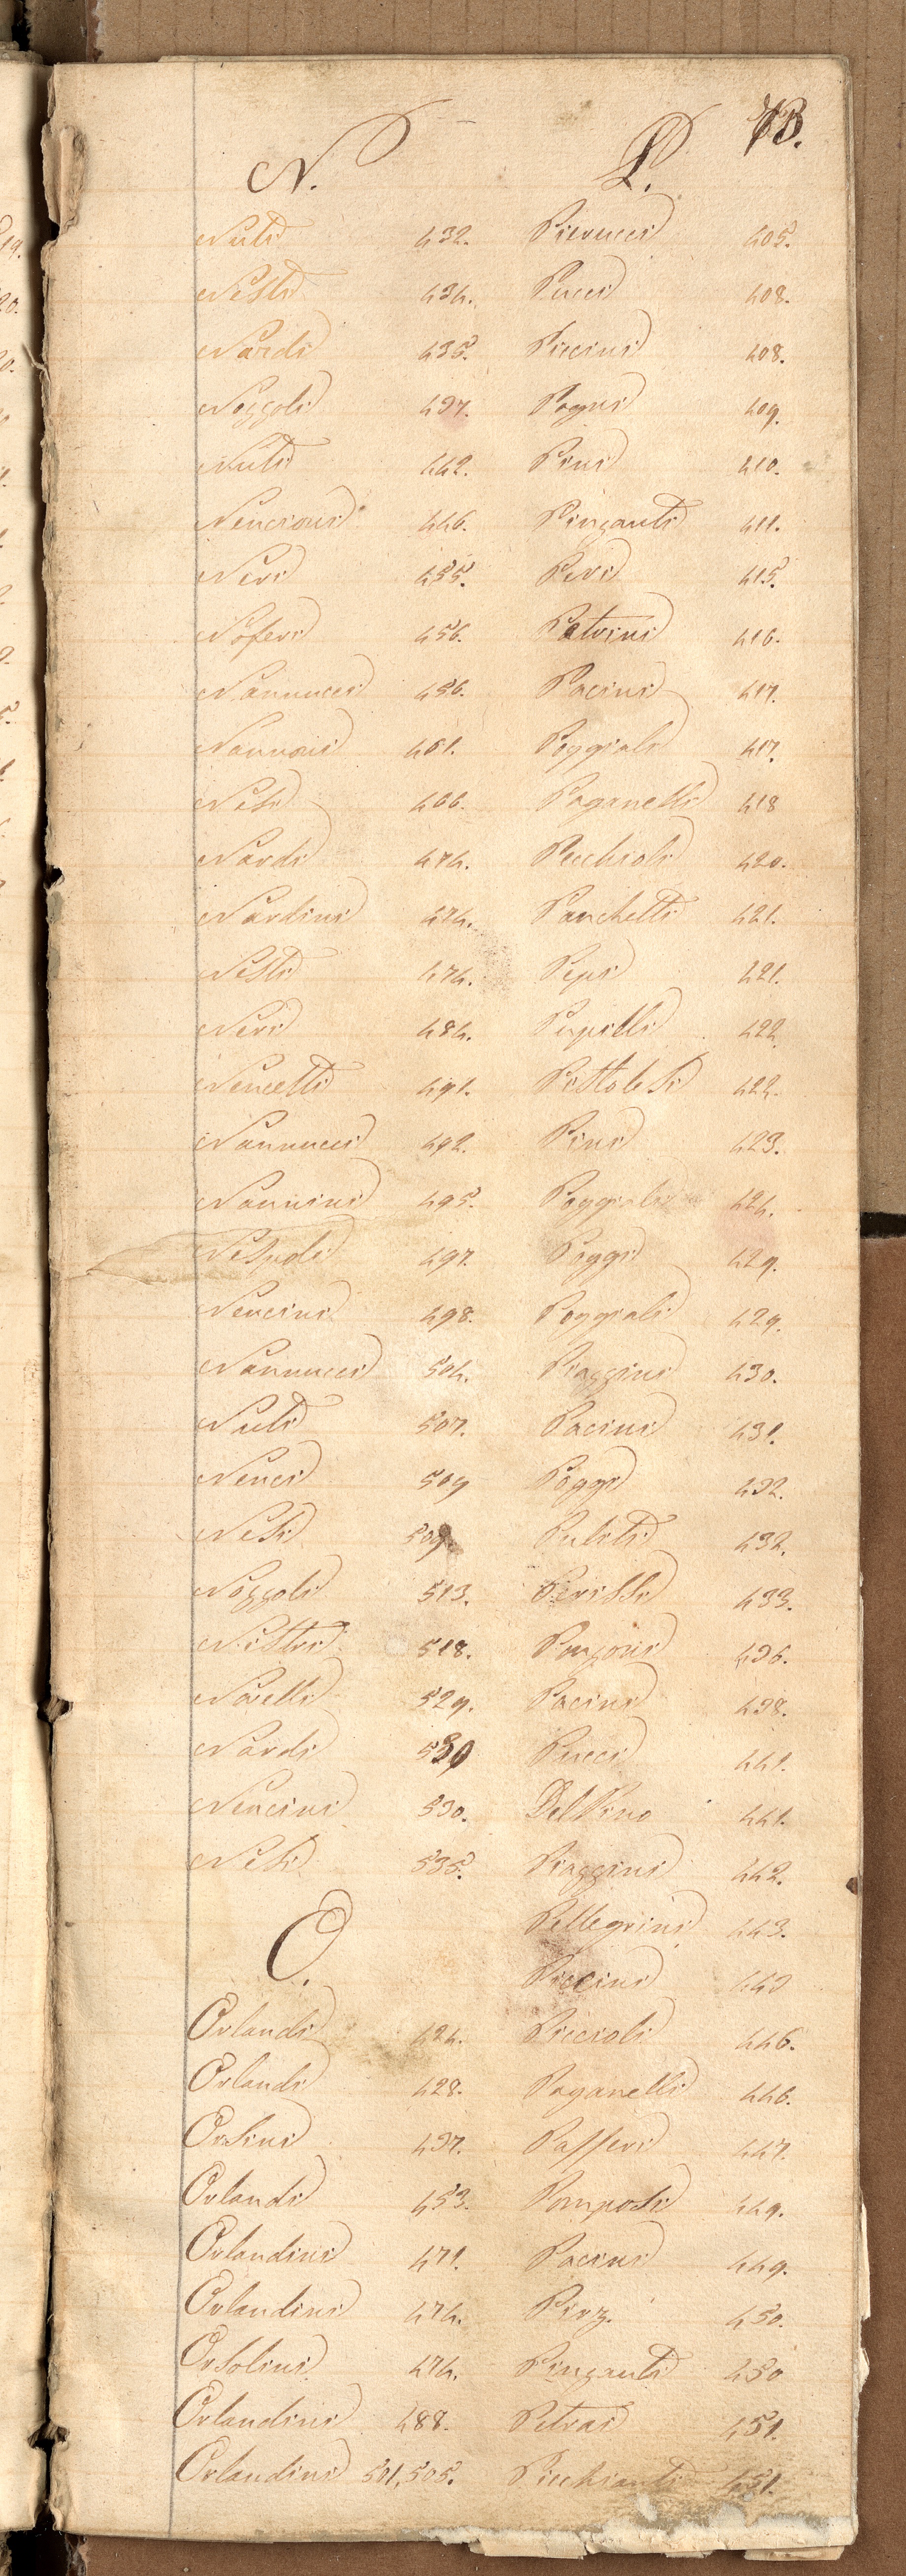 13.
N.
Nuti 432.
Nesti 434.
Nardi 435.
Nozzoli 437.
Nuti 442.
Nencioni 446.
Neri 455.
Noferi 456.
Nannucci 456.
Nannoni 461.
Nesi 466.
Nardi 474.
Nardini 474.
Nesti 474.
Neri 484.
Nencetti 491.
Nannucci 492.
Nannini 495.
Nespoli 497.
Nencini 498.
Nannucci 504.
Nuti 507.
Nenci 509
Nesi 509.
Nozzoli 513.
Nistri 518.
Novelli 529.
Nardi 530
Nencini 530.
Nesi 535.
O.
Orlandi 424.
Orlandi 428.
Orsini 437.
Orlandi 453.
Orlandini 471.
Orlandini 474.
Orsolini 474.
Orlandini 488.
Orlandini 501, 505.
P.
Pierucci 405.
Pucci 408.
Piccini 408.
Pagni 409.
Pini 410.
Pinzauti 411.
Peri 415.
Patrini 416.
Pacini 417.
Poggiali 417.
Paganelli 418
Pecchioli 420.
Panchetti 421.
Pepi 421.
Pupilli 422
Pistolesi 422.
Pini 423.
Poggiali 424.
Poggi 429.
Poggiali 429.
Piazzini 430.
Pacini 431.
Poggi 432.
Puliti 432.
Perissi 433.
Ponzoni 436.
Pacini 438.
Pucci 441.
Del Pino 441.
Piazzini 442.
Pellegrini 443.
Piccini 443
Piccioli 446.
Paganelli 446.
Passeri 447.
Pomposi 449.
Pacini 449.
Pirz. 450.
Pinzauti 450
Petrai 451.
Picchianti 451.